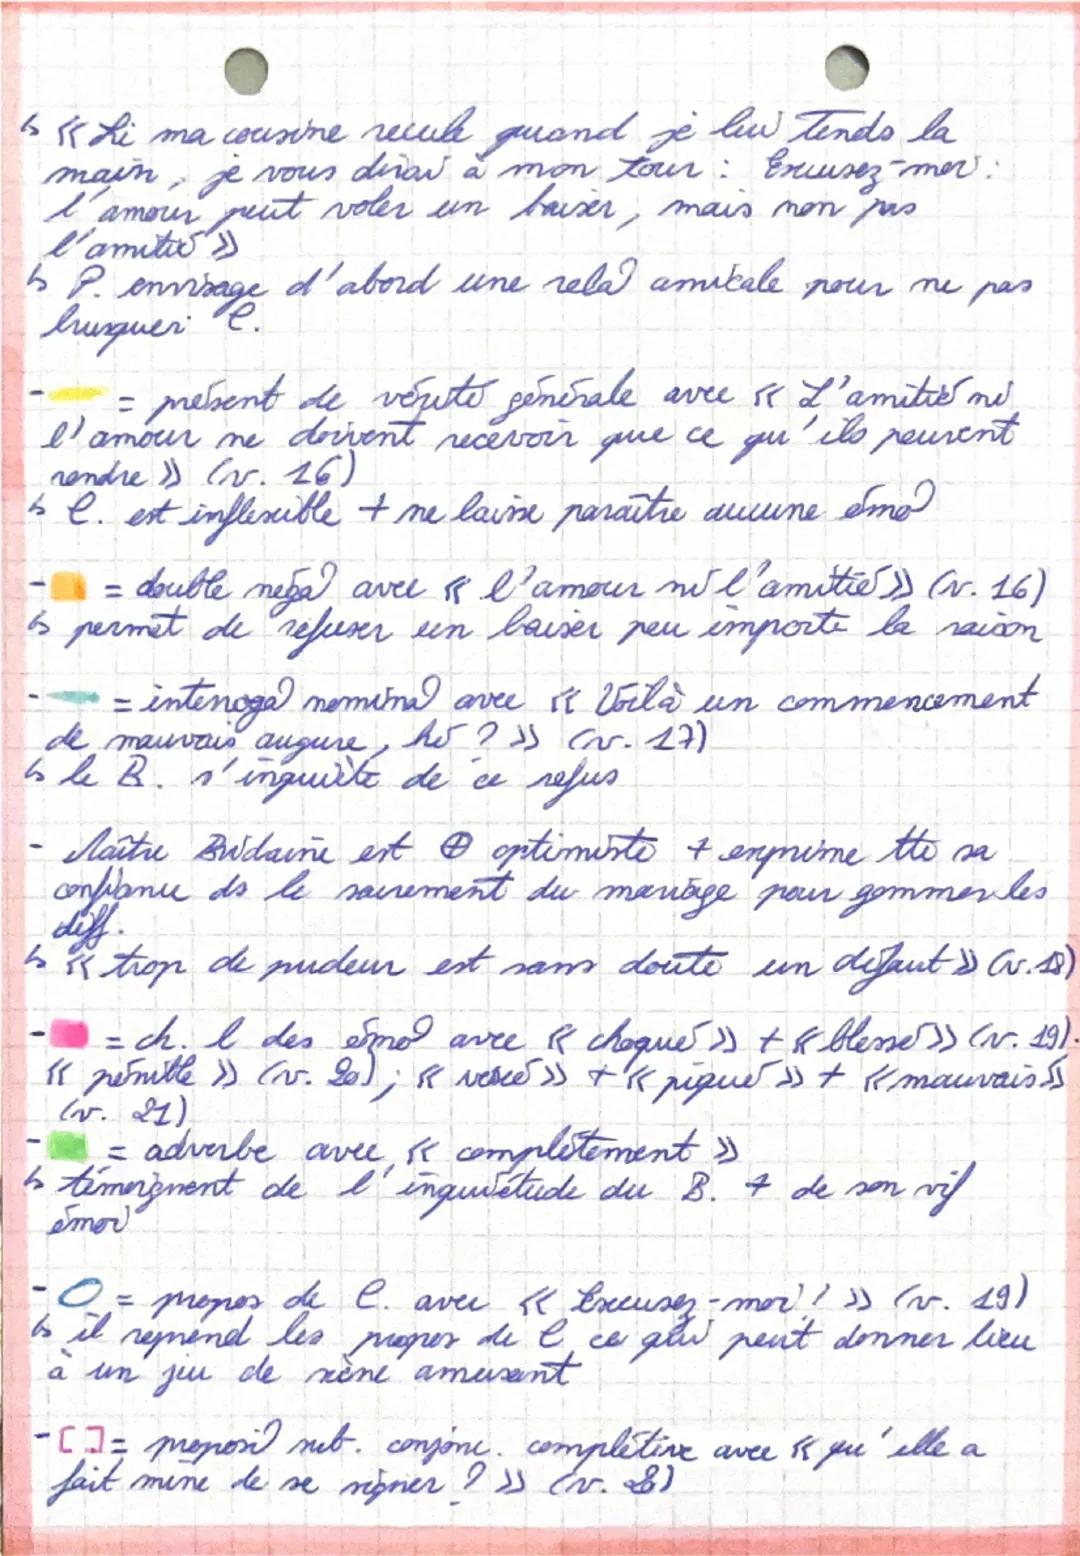 ↳ « Si ma cousine recule quand je lui tends la
main, je vous dirai à mon tour : Excusez-moi :
l'amour peut voler un baiser, mais non pas
l'amitié »
↳ P. envisage d'abord une rela° amicale pour ne pas
brusquer C.
- = présent de vérité générale avec « L'amitié ni
l'amour ne doivent recevoir que ce qu'ils peuvent
rendre » (v. 16)
↳ C. est inflexible + ne laisse paraître aucune émo°
- = double néga° avec « l'amour ni l'amitié » (v. 16)
↳ permet de refuser un baiser peu importe la raison
- = interroga° nomina° avec « Voilà un commencement
de mauvais augure, hé ? » (v. 17)
↳ le B. s'inquiète de ce refus
- Maître Bridaine est ⊕ optimiste + exprime tte sa
confiance ds le sacrement du mariage pour gommer les
diff.
↳ « trop de pudeur est sans doute un défaut » (v. 18)
- = ch. l des émo° avec « choqué » + « blessé » (v. 19).
« pénible » (v. 20) ; « vexé » + « piqué » + « mauvais »
(v. 21)
- = adverbe avec « complètement »
↳ témoignent de l'inquiétude du B. + de son vif
émoi
- = propos de C. avec « Excusez-moi ! » (v. 19)
↳ il reprend les propos de C ce qui peut donner lieu
à un jeu de scène amusant
- [ ] = proposi° sub. conjonc. complétive avec « qu'elle a
fait mine de se signer ? » (v.